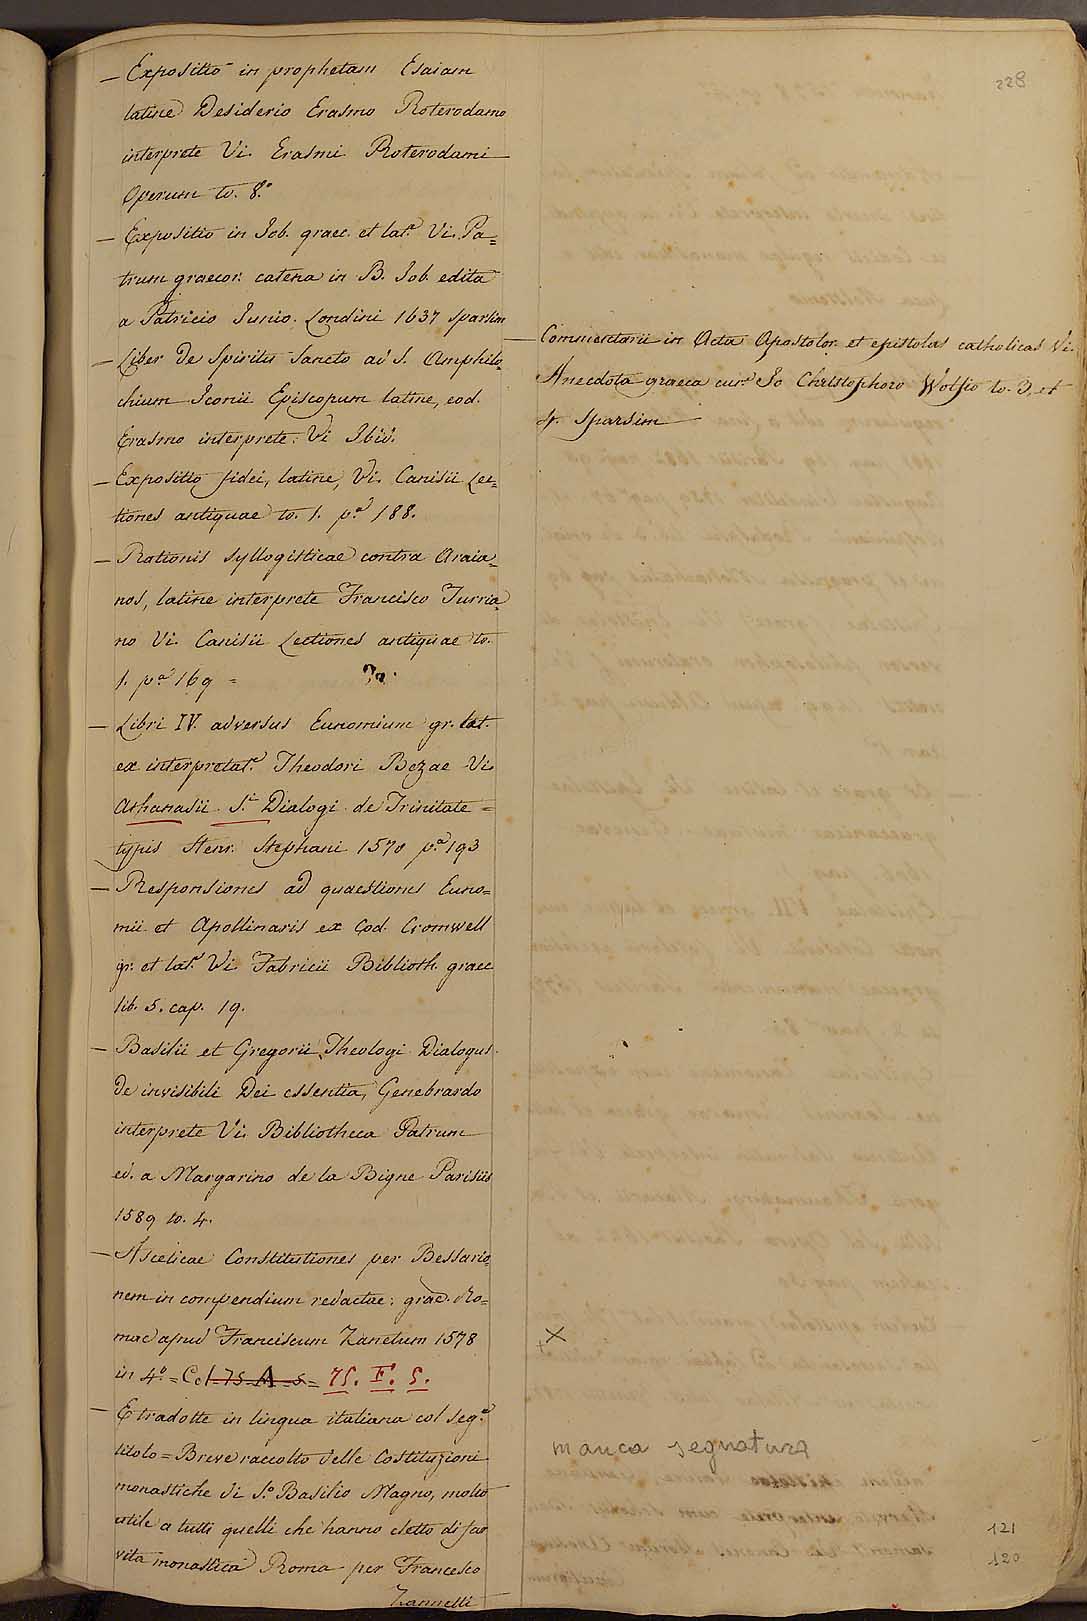 228
— Expositio in prophetam Esaiam
latine Desiderio Erasmo Roterodamo
interprete Vi. Erasmi Roterodami
Operum to. 8.°
— Expositio in Job. graec. et lat.e Vi. Pa=
trum graecor. catena in B. Job. edita
a Patricio Junio. Londini 1637 sparsim
— Liber de Spiritu Sancto ad S. Amphilo=
chium Iconii Episcopum latine, eod.
Erasmo interprete. Vi Ibid.
— Expositio fidei, latine, Vi. Canisii Lec=
tiones antiquae to. 1. p.a 188.
— Rationis syllogisticae contra Araia=
nos, latine interprete Francisco Turria=
no Vi. Canisii Lectiones antiquae to.
1. p.a 169 =
— Libri IV. adversus Eunomium gr. lat.
ex interpretat.e Theodori Bezae Vi.
Athanasii S.i Dialogi de Trinitate =
typis Henr. Stephani 1570 p.a 193
— Responsiones ad quaestiones Euno=
mii et Apollinaris ex Cod. Cromwell
gr. et lat.e Vi Fabricii Biblioth. graec
lib. 5. cap. 19.
— Basilii et Gregorii Theologi Dialogus
de invisibili Dei essentia, Genebrardo
interprete Vi. Bibliotheca Patrum
ed. a Margarino de la Bigne Parisiis
1589 to. 4.
— Asceticae Constitutiones per Bessario=
nem in compendium redactae: graec. Ro=
mae apud Franciscum Zanetum 1578
in 4.° = Col. 75 A 5 = 75. F. 5.
— E tradotte in lingua italiana col seg.e
titolo = Breve raccolto delle Costituzioni
monastiche di S.o Basilio Magno, molto
utile a tutti quelli che hanno eletto di far
vita monastica Roma per Francesco
Zannetti
— Commentarii in Acta Apostolor. et epistolas catholicas Vi.
Anecdota graeca cur.e Jo Christophoro Wolfio to. 3, et
4. sparsim
×
manca segnatura
121
120